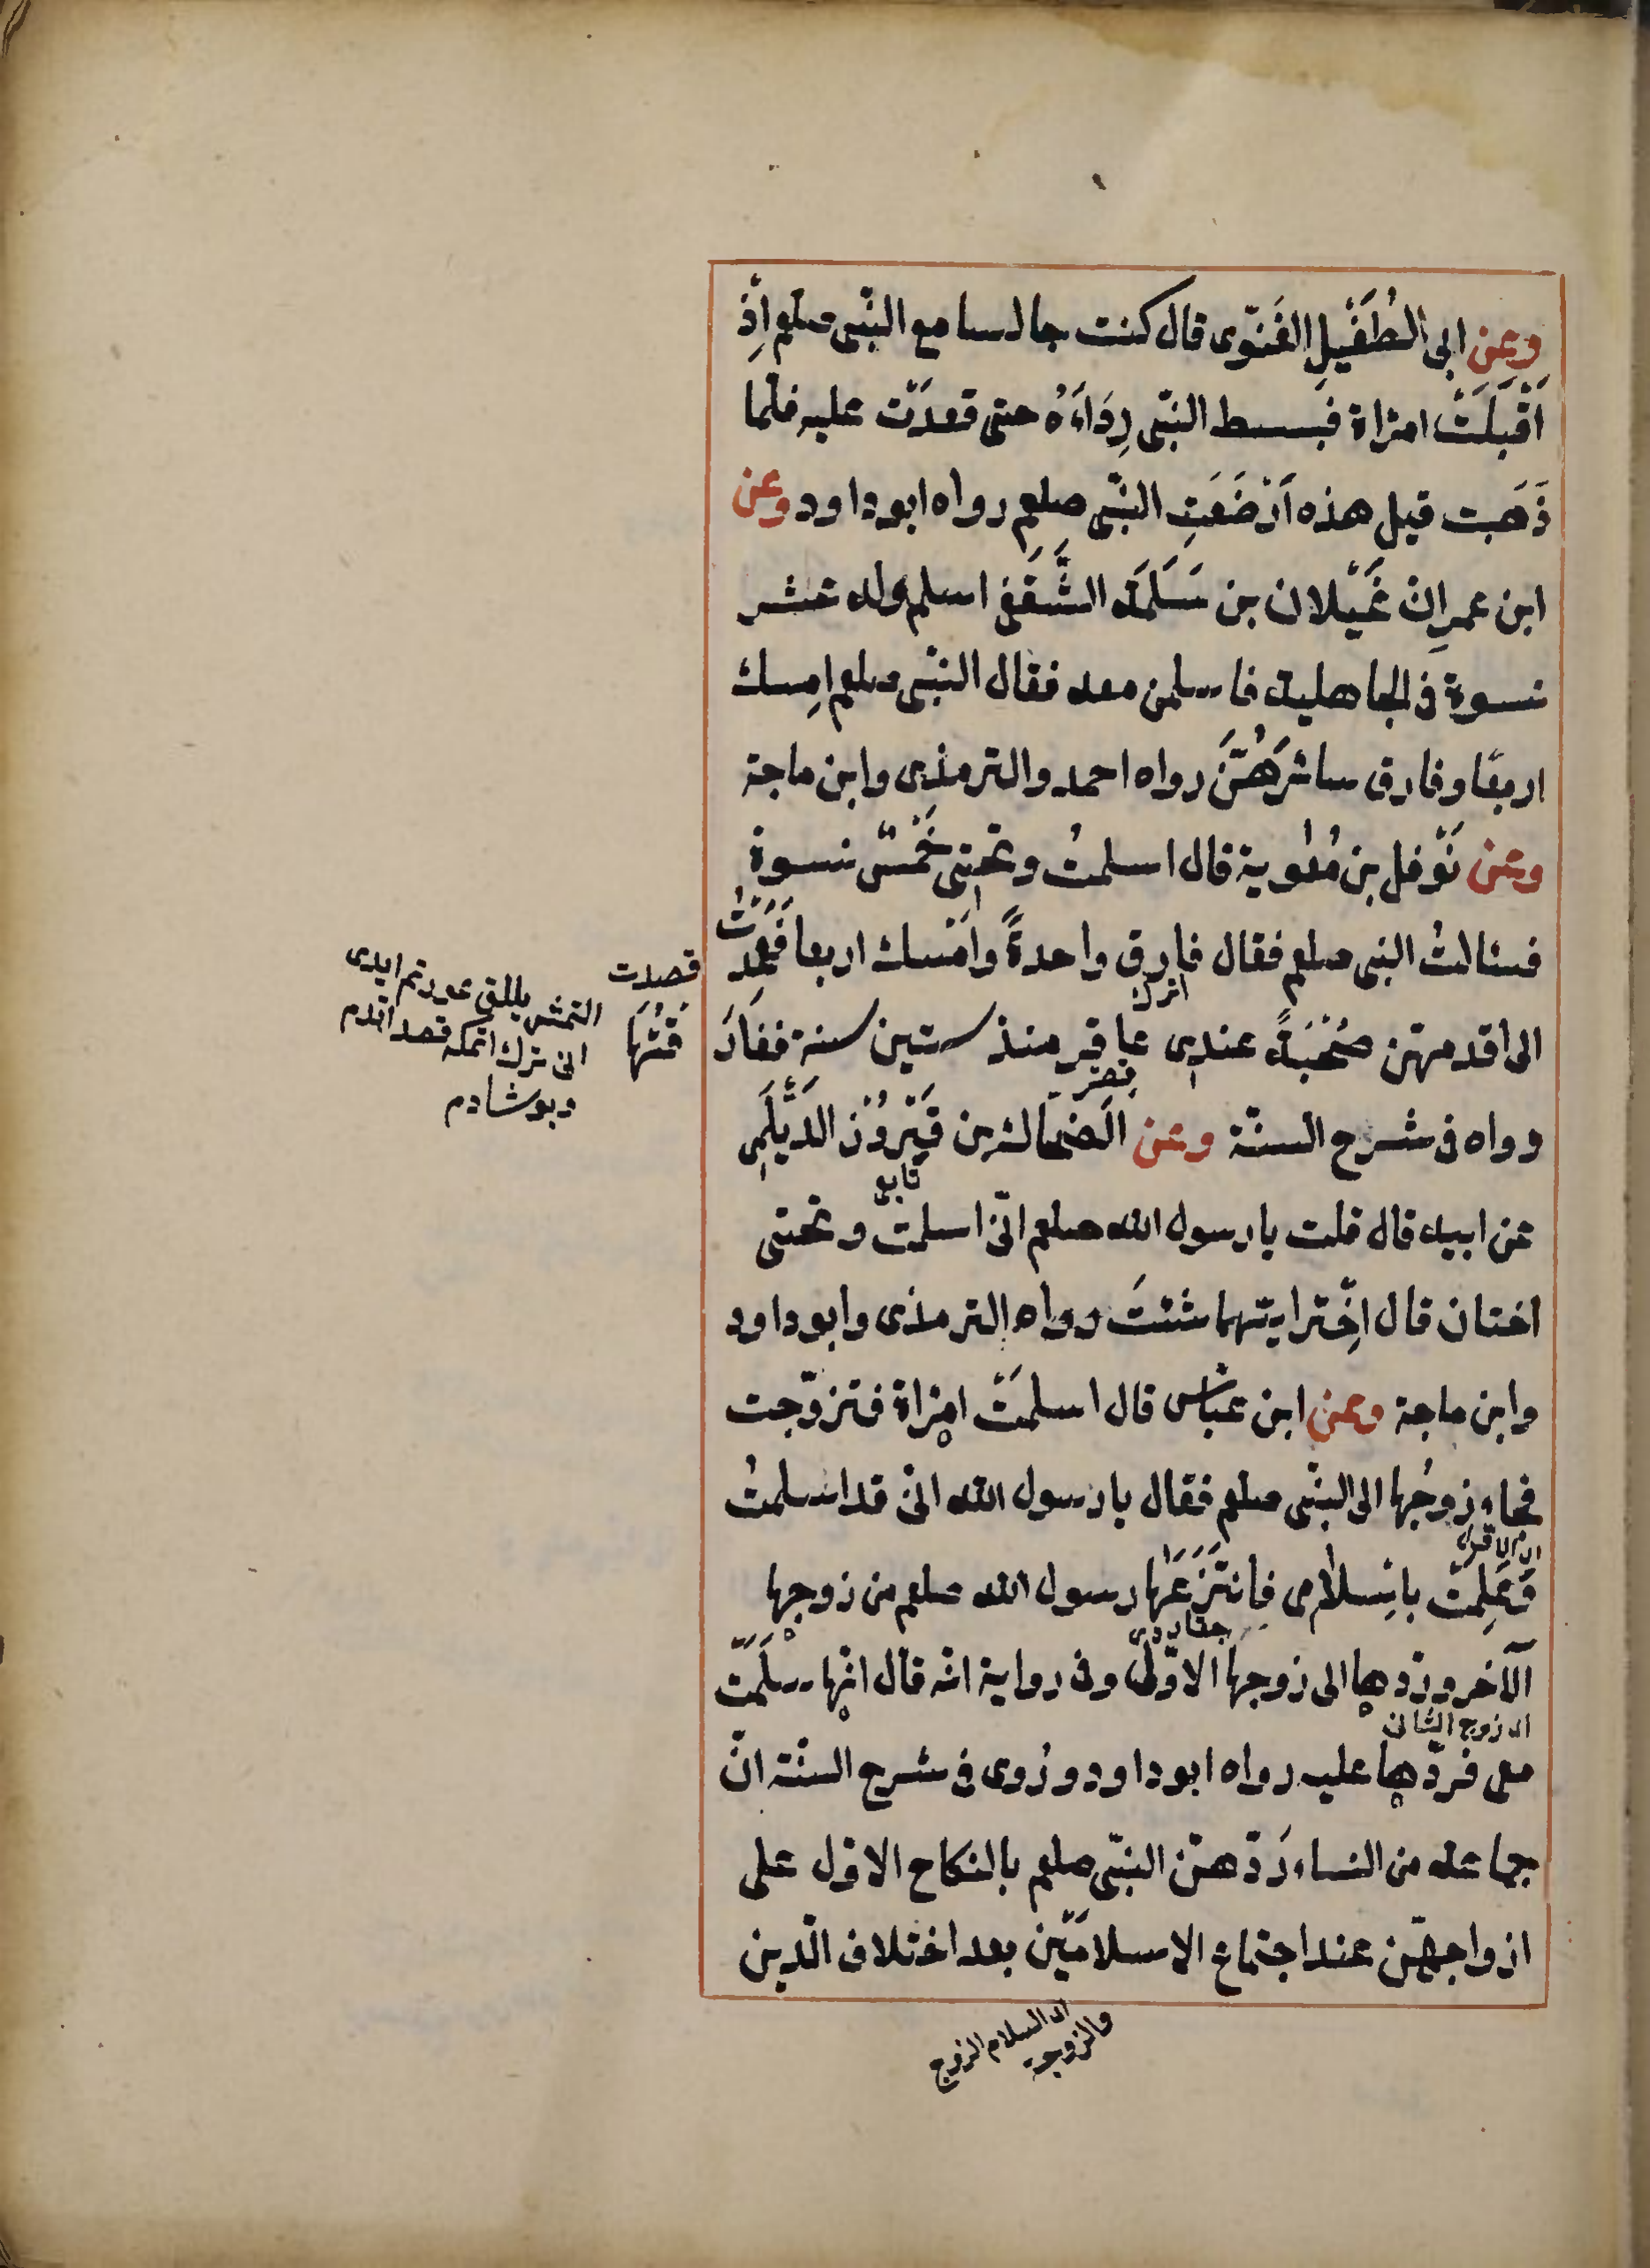 وعن ابى الطُفَيْلِ الغَنَوّى قال كنت جالسا مع النّبى صلعم اِذْ
اَقْبَلَتْ امْرَاة فبسط النبّى رِدَاءَهُ حتى قعدَتْ عليه فلمّا
ذَهَبت قيل هذه اَرْضَعَتِ النبّى صلعم رواه ابو داود وعن
ابن عمر اِنّ غَيْلان بن سَلَمَة الثَّقَفى اسلم وله عشر
نسوة فى الجاهلية فاسلمن معه فقال النبّى صلعم امِسك
اربعًا وفارق سائرَهُنَّ رواه احمد والترمذى وابن ماجة
وعن نَوْفل بن مُعٰوية قال اسلمتُ وتحتى خَمْسّ نسوة
فسئالتُ النبى صلعم فقال فارِق واحدةً وامْسك اربعا فَعَمَدْتُ
قصدت
اترك
الى اقدمهنّ صُحْبَةً عندى عاقر منذ ستين سنة ففارَ
قْتُهَا
التمش يللق عورتم ايدى
انى ترك اتمكه قصد اتدم
وبوشادم
رواه فى شرح السنّة وعن الضحاك بن فَيْرُوْز الدَيْلَمِى
تابع
عن ابيه قال قلت يا رسول الله صلعم انّى اسلمت وتحتى
اختان قال اِخْتر ايتهما شئتَ رواه الترمذى وابو داود
وابن ماجة وعن ابن عبّاس قال اسلمَتْ امْرَاة فتزوّجت
فجاء زوجُها الى النبّى صلعم فقال يا رسول الله انّى قد اسلمتُ
وَعَلِمَتْ باِسْلاٰمى فانْتَزَعَهٰا رسول الله صلعم من زوجها
الآخر وردّها الى زوجها الاوّل وفى رواية انّه قال انّها اسلَمَتْ
اى زوج الثانى
معى فردّها عليه رواه ابو داود ورُوى فى شرح السنّة انّ
جماعة من النساء رَدّهنّ النبّى صلعم بالنكاح الاوّل على
ازواجهنّ عند اجتماع الاسلامَيْن بعد اختلاف الدّين
اى السلام الزوج
والزوجة